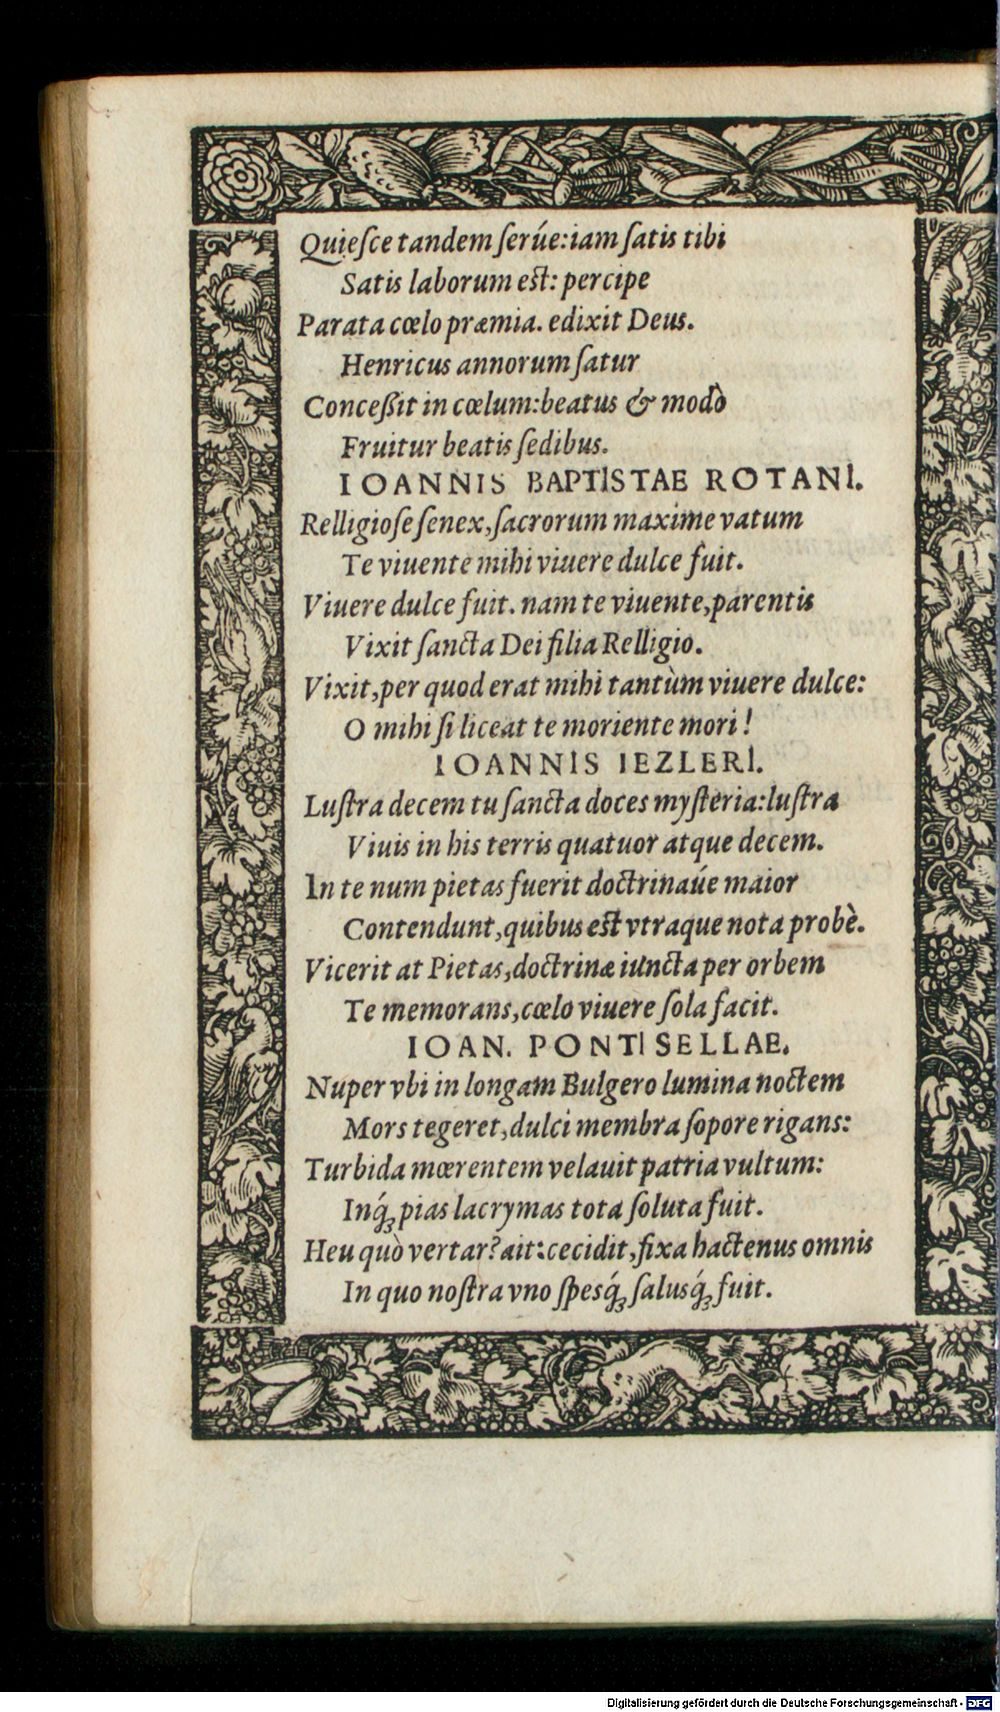 Quieſce tandem ſerúe: iam ſatis tibi
Satis laborum eſt: percipe
Parata cœlo præmia. edixit Deus.
Henricus annorum ſatur
Conceßit in cœlum: beatus & modò
Fruitur beatis ſedibus.
IOANNIS BAPTISTAE ROTANI.
Relligioſe ſenex, ſacrorum maxime vatum
Te viuente mihi viuere dulce fuit.
Viuere dulce fuit. nam te viuente, parentis
Vixit ſancta Dei filia Relligio.
Vixit, per quod erat mihi tantùm viuere dulce:
O mihi ſi liceat te moriente mori!
IOANNIS IEZLERI.
Luſtra decem tu ſancta doces myſteria: luſtra
Viuis in his terris quatuor atque decem.
In te num pietas fuerit doctrinaúe maior
Contendunt, quibus eſt vtraque nota probè.
Vicerit at Pietas, doctrinæ iuncta per orbem
Te memorans, cœlo viuere ſola facit.
IOAN. PONTISELLAE.
Nuper vbi in longam Bulgero lumina noctem
Mors tegeret, dulci membra ſopore rigans:
Turbida mœrentem velauit patria vultum:
Inq́ꝫ pias lacrymas tota ſoluta fuit.
Heu quò vertar? ait: cecidit, fixa hactenus omnis
In quo noſtra vno ſpesq́ꝫ ſalusq́ꝫ fuit.
Digitalisierung gefördert durch die Deutsche Forschungsgemeinschaft - DFG